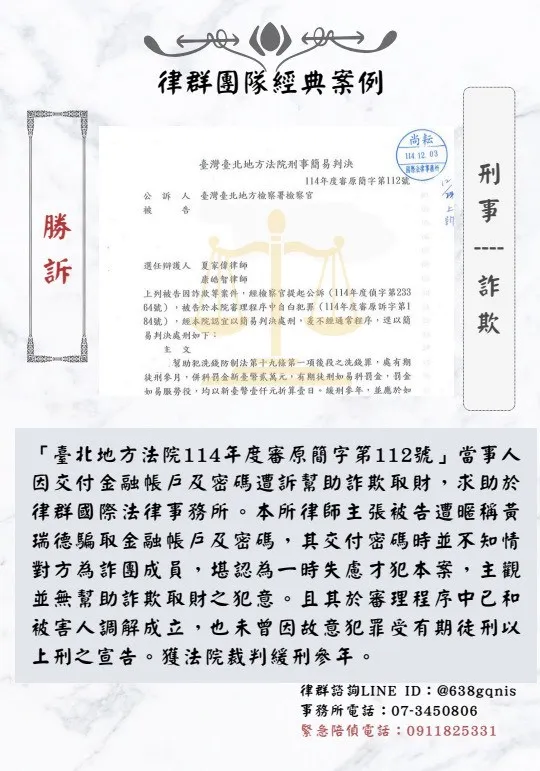 律群團隊經典案例
勝訴
刑事
詐欺
尚耘
114.12.03
國際法律事務所
臺灣臺北地方法院刑事簡易判決
114年度審原簡字第112號
公訴人 臺灣臺北地方檢察署檢察官
被告
選任辯護人 夏家偉律師
康皓智律師
上列被告因詐欺等案件,經檢察官提起公訴(114年度偵字第233
64號),被告於本院審理程序中自白犯罪(114年度審原訴字第1
84號),經本院認宜以簡易判決處刑,爰不經通常程序,逕以簡
易判決處刑如下:
主文
幫助犯洗錢防制法第十九條第一項後段之洗錢罪,處有期
徒刑參月,併科罰金新臺幣貳萬元,有期徒刑如易科罰金,罰金
如易服勞役,均以新臺幣壹仟元折算壹日。緩刑參年,並應於如
「臺北地方法院114年度審原簡字第112號」當事人
因交付金融帳戶及密碼遭訴幫助詐欺取財,求助於
律群國際法律事務所。本所律師主張被告遭暱稱黃
瑞德騙取金融帳戶及密碼,其交付密碼時並不知情
對方為詐團成員,堪認為一時失慮才犯本案,主觀
並無幫助詐欺取財之犯意。且其於審理程序中已和
被害人調解成立,也未曾因故意犯罪受有期徒刑以
上刑之宣告。獲法院裁判緩刑參年。
律群諮詢LINE ID:@638gqnis
事務所電話:07-3450806
緊急陪偵電話:0911825331